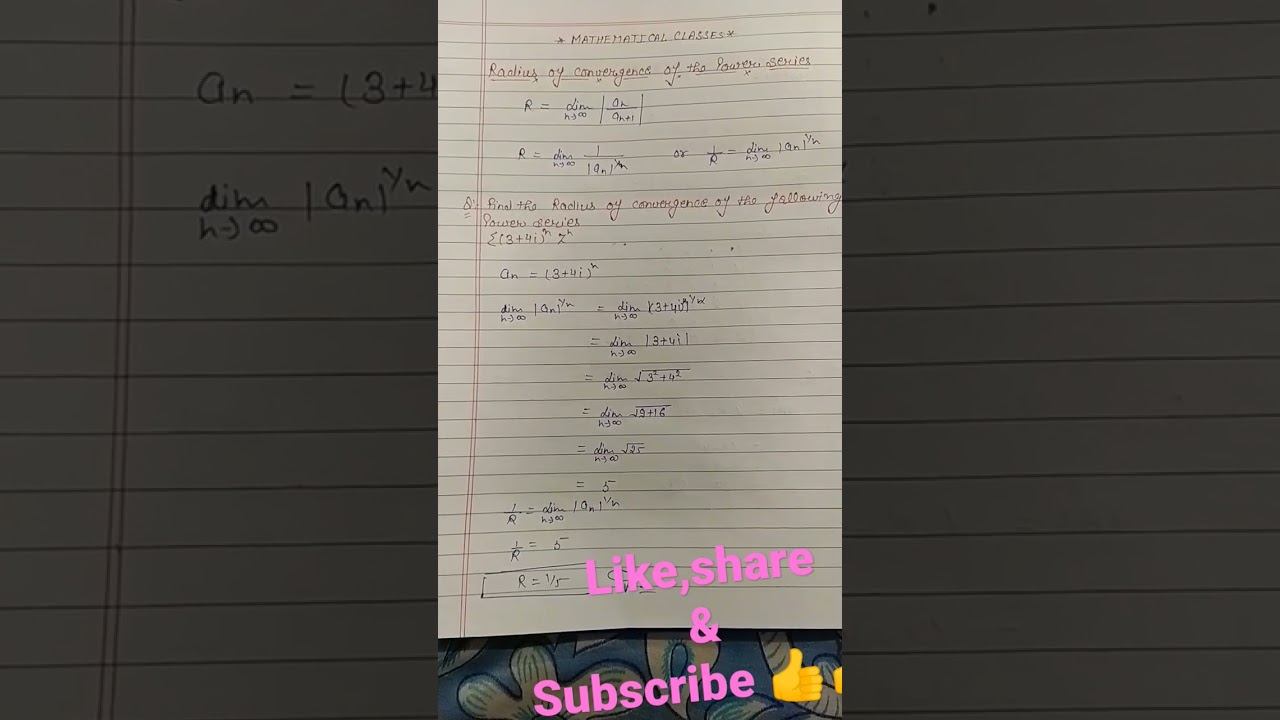 * MATHEMATICAL CLASSES *
Radius of convergence of the Power series
R = lim n→∞ |an / an+1|
R = lim n→∞ 1 / |an|^1/n or 1/R = lim n→∞ |an|^1/n
Q:- Find the Radius of convergence of the following
Power series
Σ(3+4i)^n z^n
an = (3+4i)^n
lim n→∞ |an|^1/n = lim n→∞ |(3+4i)^n|^1/n
= lim n→∞ |3+4i|
= lim n→∞ √3²+4²
= lim n→∞ √9+16
= lim n→∞ √25
= 5
1/R = lim n→∞ |an|^1/n
1/R = 5
R = 1/5
Like,share
&
Subscribe 👍
an = (3+4
lim n→∞ |an|^1/n